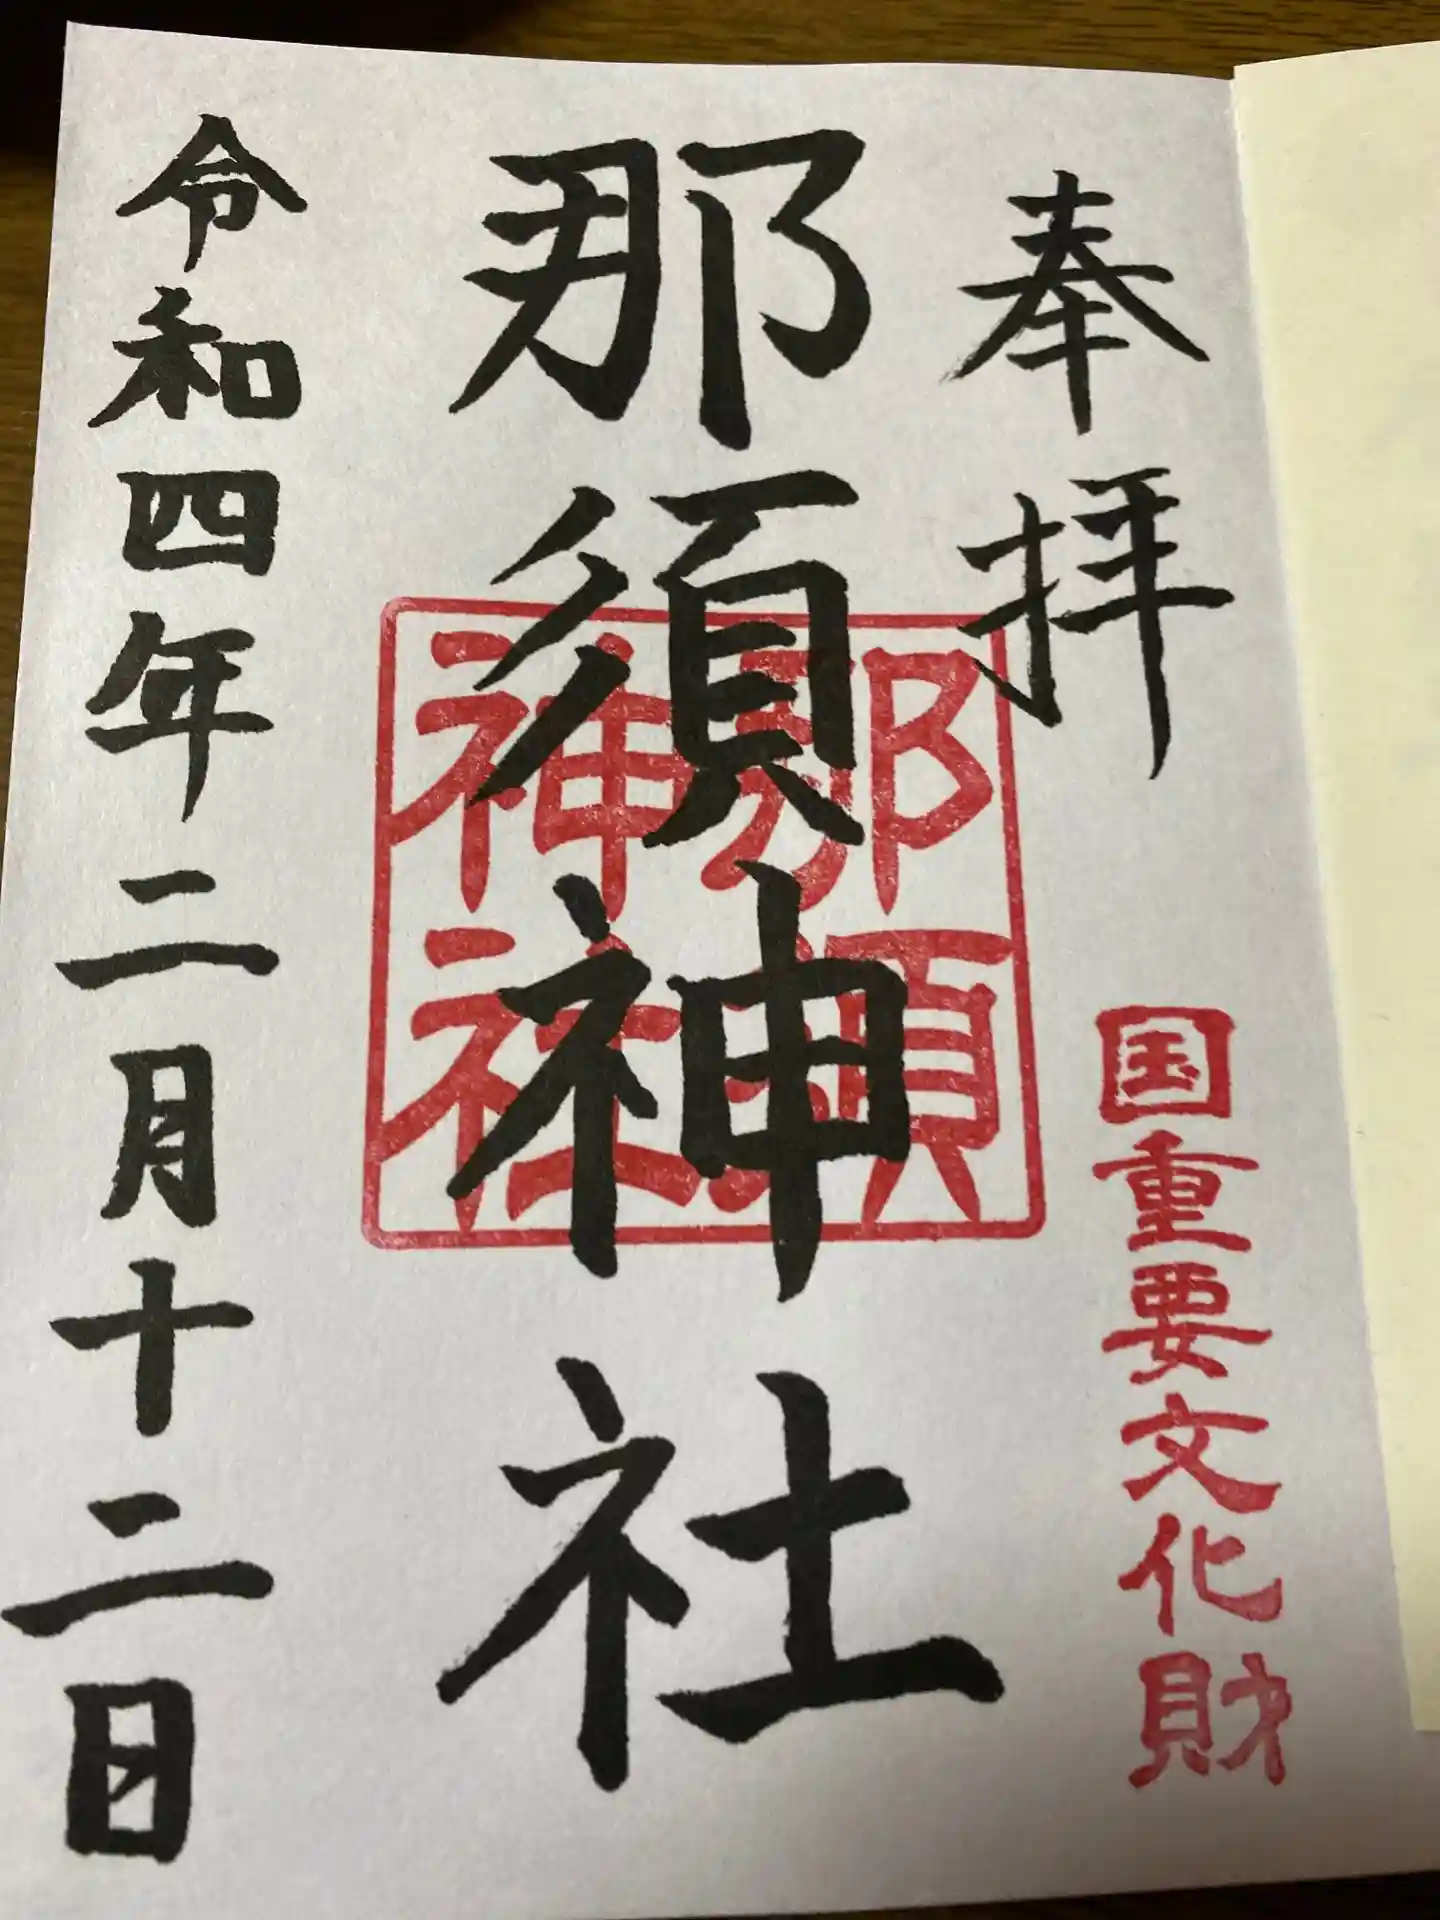 奉拝
国重要文化財
那須神社
那須
神社
令和四年二月十二日